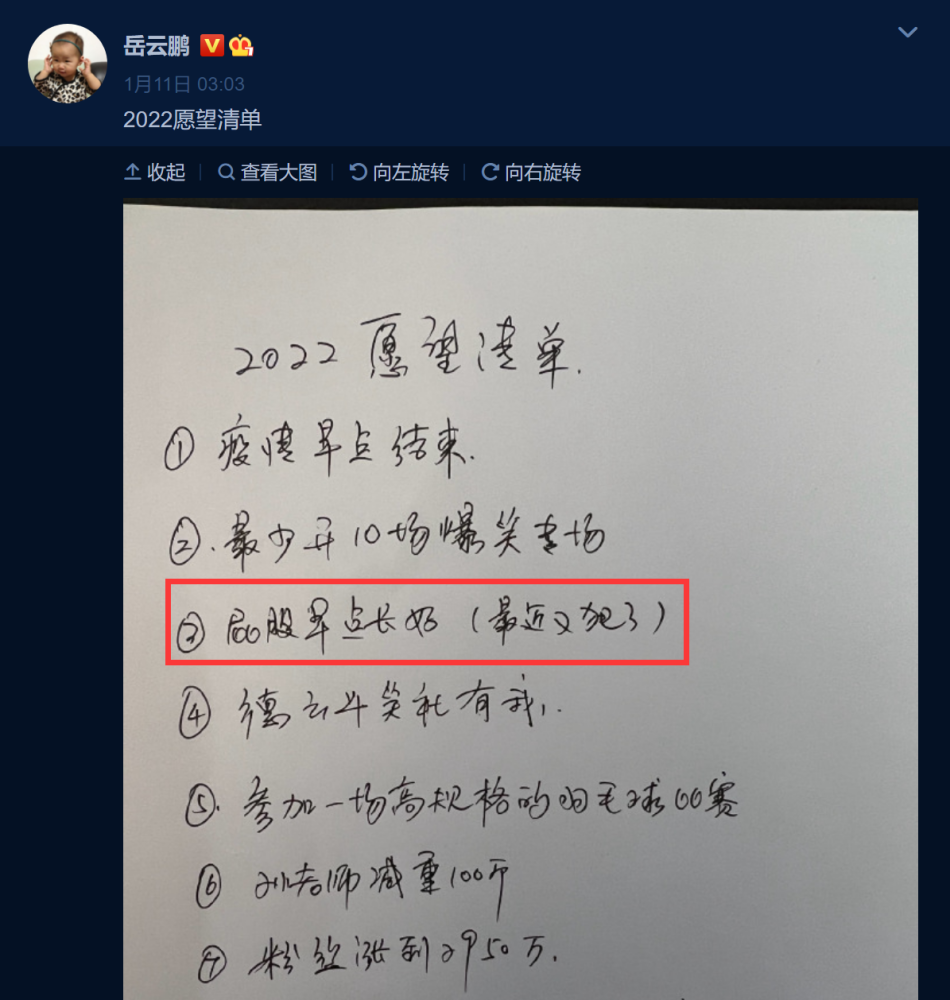 岳云鹏
1月11日 03:03
2022愿望清单
收起 查看大图 向左旋转 向右旋转
2022愿望清单.
① 疫情早点结束.
②.最少开10场爆笑专场
③ 屁股早点长好（最近又犯了）
④ 德云斗笑社有我,..
⑤.参加一场高规格的羽毛球比赛
⑥ 孙老师减重100斤
⑦ 粉丝涨到2950万.